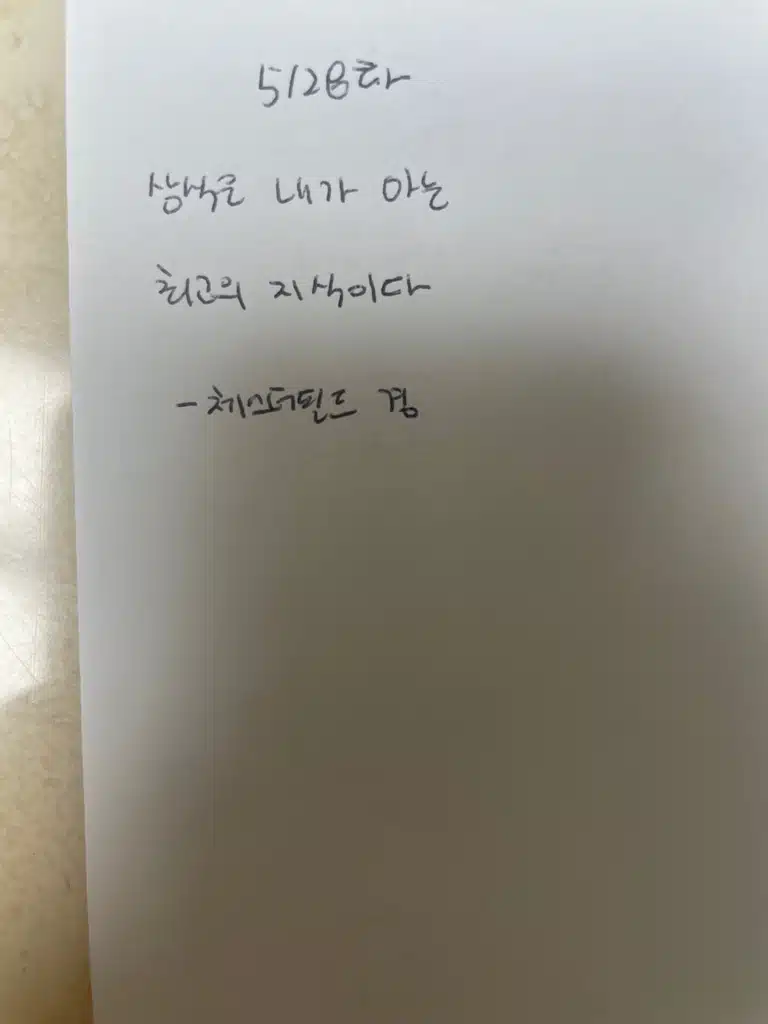 5128화
상식은 내가 아는
최고의 지식이다
- 체스터필드 경